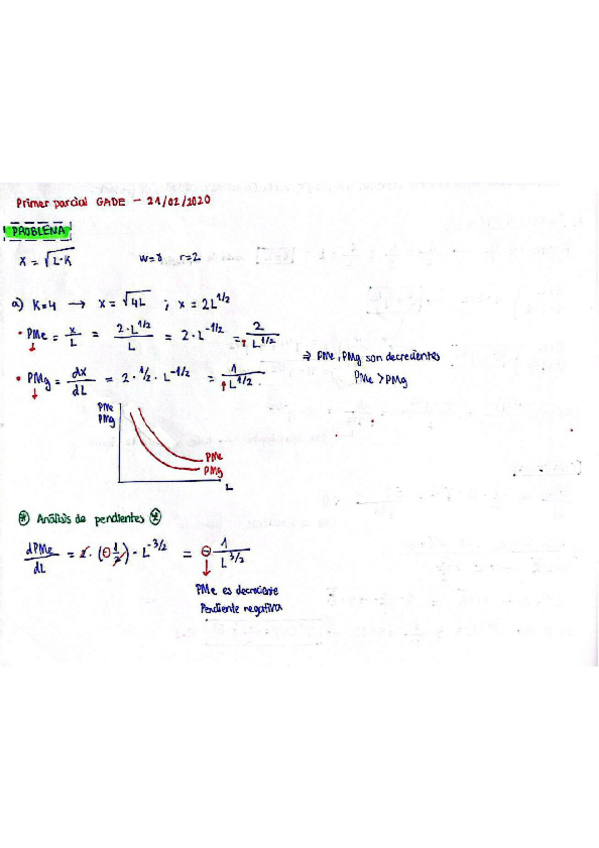 Primer parcial GADE - 21/02/2020
PROBLEMA
X = √L·K w=8 r=2
a) K=4 → X = √4L ; X = 2L^1/2
• PMe = X/L = 2·L^1/2 / L = 2·L^-1/2 = 2/L^1/2
⇒ PMe, PMg son decrecientes
• PMg = dX/dL = 2·1/2·L^-1/2 = 1/L^1/2
PMe > PMg
PMe
PMg
PMe
PMg
L
* Análisis de pendientes *
dPMe/dL = 2·(-1/2)·L^-3/2 = - 1/L^3/2
PMe es decreciente
Pendiente negativa